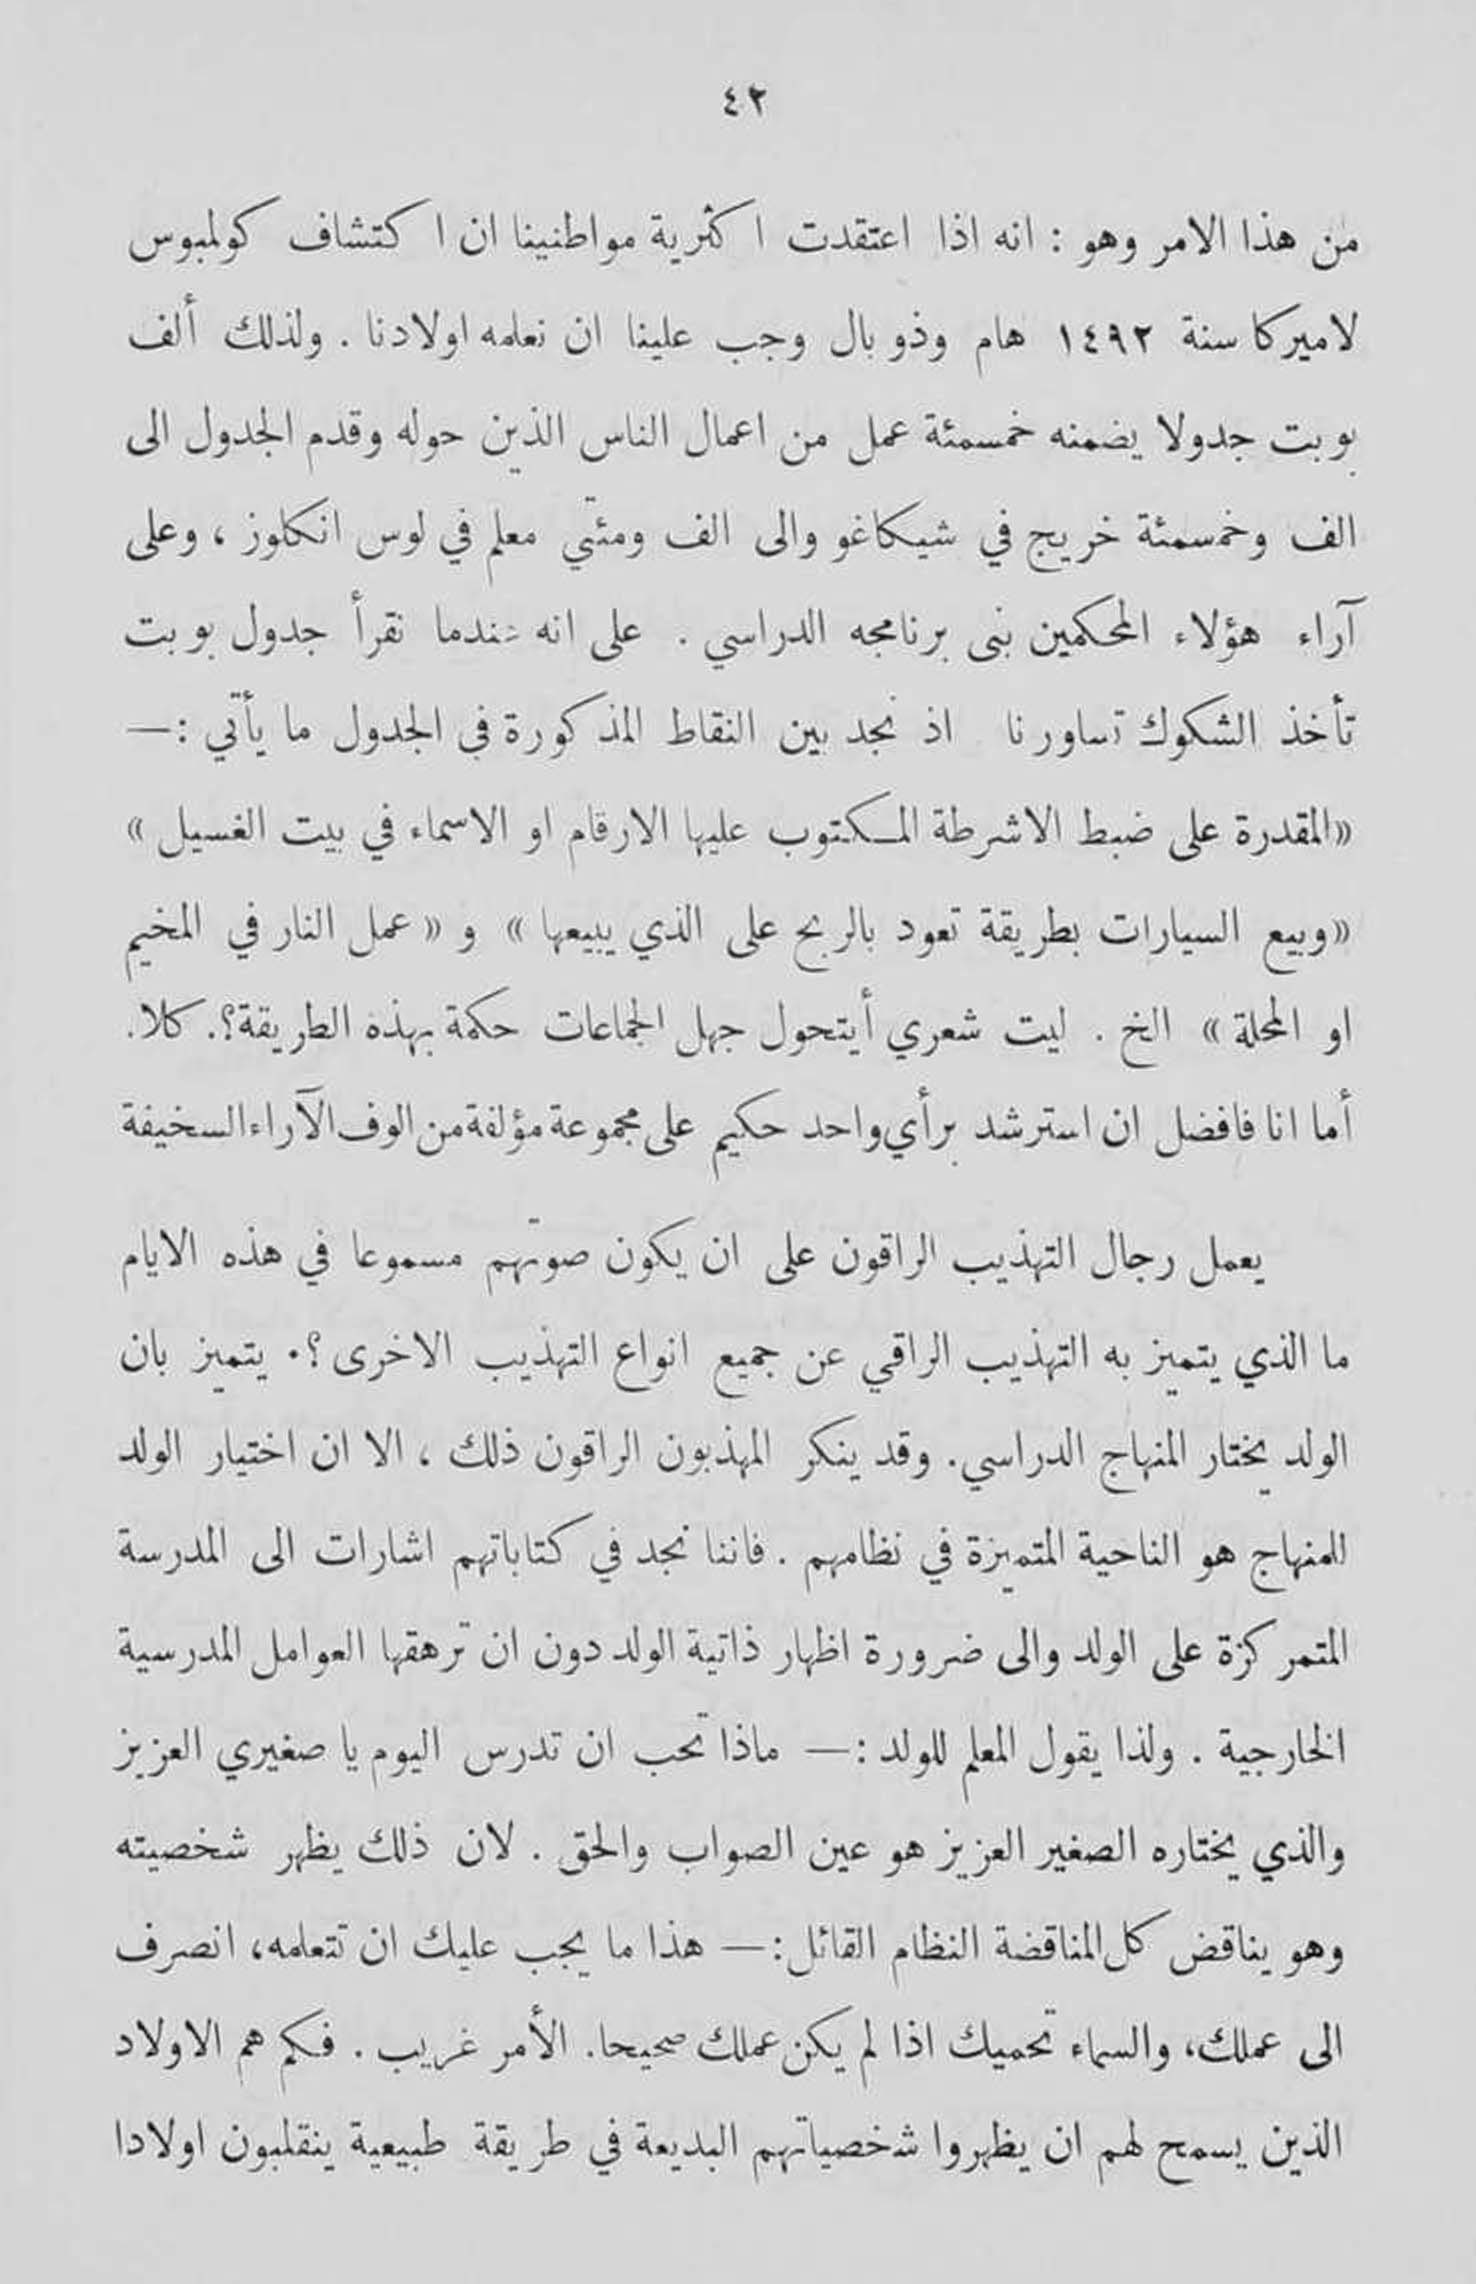 ٤٢
من هذا الامر وهو : انه اذا اعتقدت اكثرية مواطنينا ان اكتشاف كولمبوس
لاميركا سنة ١٤٩٢ هام وذو بال وجب علينا ان نعلمه اولادنا . ولذلك ألف
بوبت جدولا يضمنه خمسمئة عمل من اعمال الناس الذين حوله وقدم الجدول الى
الف وخمسمئة خريج في شيكاغو والى الف ومئتي معلم في لوس انكلوز ، وعلى
آراء هؤلاء المحكمين بنى برنامجه الدراسي . على انه عندما نقرأ جدول بوبت
تأخذ الشكوك تساورنا اذ نجد بين النقاط المذكورة في الجدول ما يأتي :—
«المقدرة على ضبط الاشرطة المكتوب عليها الارقام او الاسماء في بيت الغسيل »
«وبيع السيارات بطريقة تعود بالربح على الذي يبيعها » و « عمل النار في المخيم
او المحلة » الخ . ليت شعري أيتحول جهل الجماعات حكمة بهذه الطريقة؟. كلا.
أما انا فافضل ان استرشد برأي واحد حكيم على مجموعة مؤلفة من الوف الآراء السخيفة
يعمل رجال التهذيب الراقون على ان يكون صوتهم مسموعا في هذه الايام
ما الذي يتميز به التهذيب الراقي عن جميع انواع التهذيب الاخرى ؟. يتميز بان
الولد يختار المنهاج الدراسي. وقد ينكر المهذبون الراقون ذلك ، الا ان اختيار الولد
للمنهاج هو الناحية المتميزة في نظامهم . فاننا نجد في كتاباتهم اشارات الى المدرسة
المتمركزة على الولد والى ضرورة اظهار ذاتية الولد دون ان ترهقها العوامل المدرسية
الخارجية . ولذا يقول المعلم للولد :— ماذا تحب ان تدرس اليوم يا صغيري العزيز
والذي يختاره الصغير العزيز هو عين الصواب والحق . لان ذلك يظهر شخصيته
وهو يناقض كل المناقضة النظام القائل :— هذا ما يجب عليك ان تتعلمه، انصرف
الى عملك، والسماء تحميك اذا لم يكن عملك صحيحا. الأمر غريب . فكم هم الاولاد
الذين يسمح لهم ان يظهروا شخصياتهم البديعة في طريقة طبيعية ينقلبون اولادا